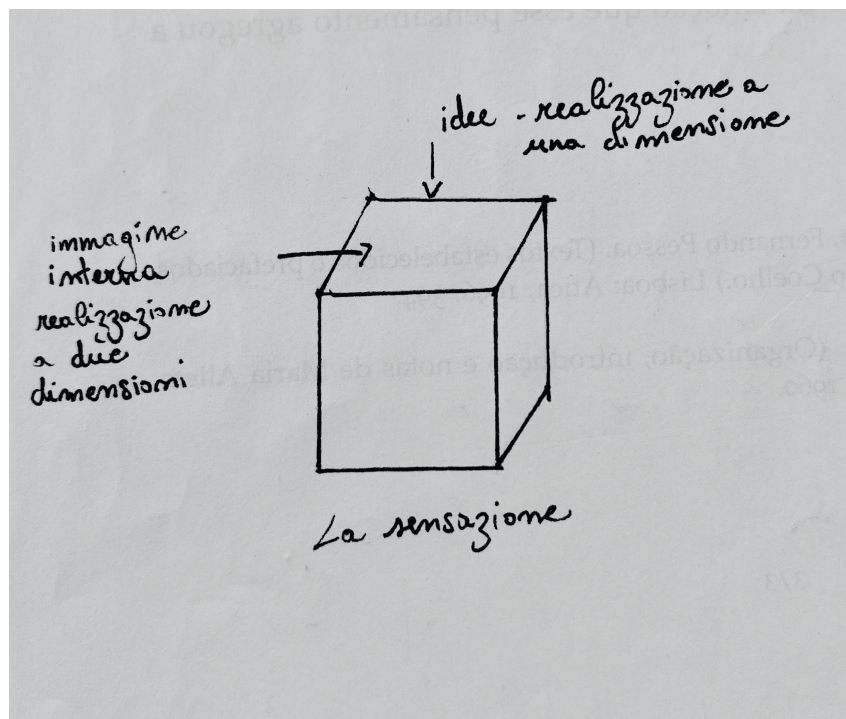 idee - realizzazione a
una dimensione
immagine
interna
realizzazione
a due
dimensioni
La sensazione